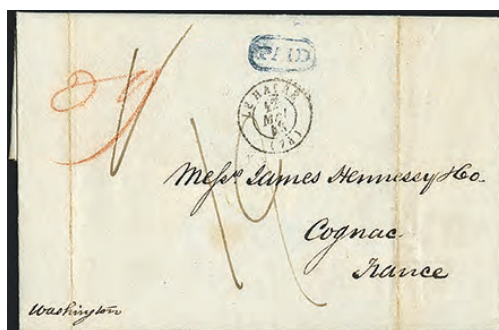 PAID
LE HAVRE
(74)
Messrs James Hennessy & Co.
Cognac
France
Washington